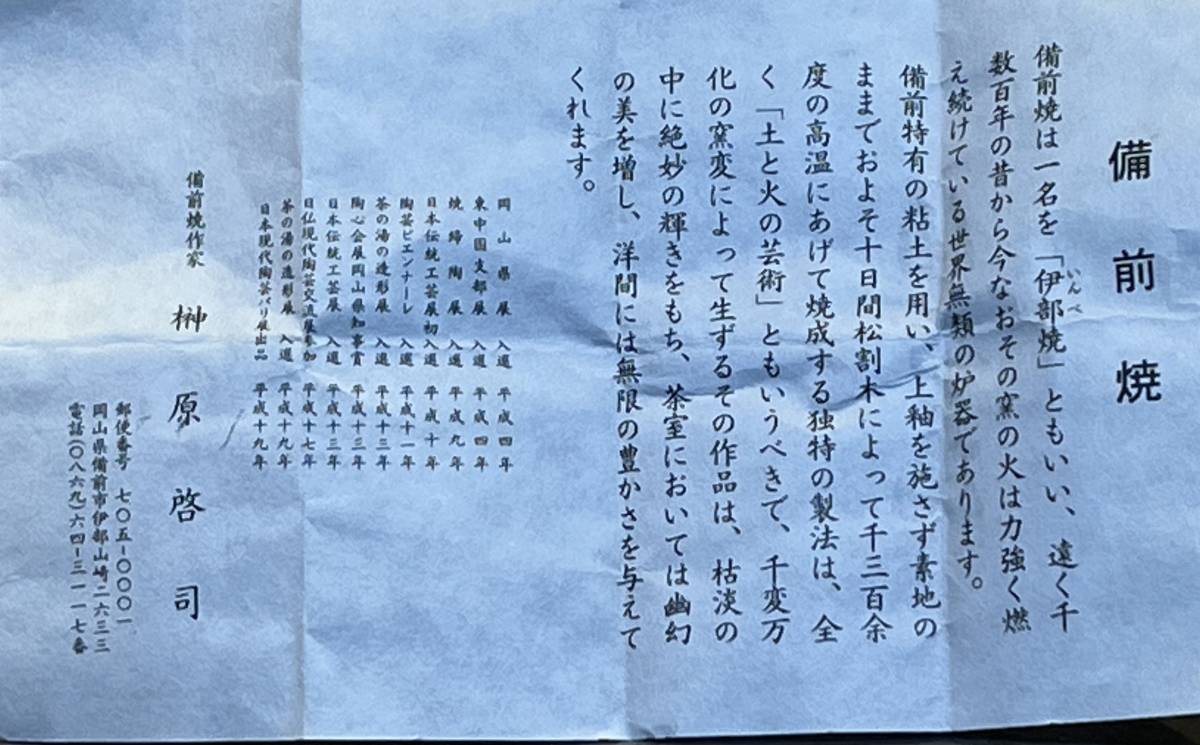 備前焼
備前焼は一名を「伊部焼」ともいい、遠く千
いんべ
数百年の昔から今なおその窯の火は力強く燃
え続けている世界無類の炉器であります。
備前特有の粘土を用い、上釉を施さず素地の
ままでおよそ十日間松割木によって千三百余
度の高温にあげて焼成する独特の製法は、全
く「土と火の芸術」ともいうべきで、千変万
化の窯変によって生ずるその作品は、枯淡の
中に絶妙の輝きをもち、茶室においては幽幻
の美を増し、洋間には無限の豊かさを与えて
くれます。
岡山県展 入選 平成四年
東中国支部展 入選 平成四年
焼締陶展 入選 平成九年
日本伝統工芸展初入選 平成十年
陶芸ビエンナーレ 入選 平成十一年
茶の湯の造形展 入選 平成十三年
陶心会展岡山県知事賞 平成十三年
日本伝統工芸展 入選 平成十三年
日仏現代陶芸交流展参加 平成十七年
茶の湯の造形展 入選 平成十九年
日本現代陶芸パリ展出品 平成十九年
備前焼作家 榊原啓司
郵便番号 七〇五-〇〇〇一
岡山県備前市伊部山崎二六三三
電話(〇八六九)六四-三一一七番